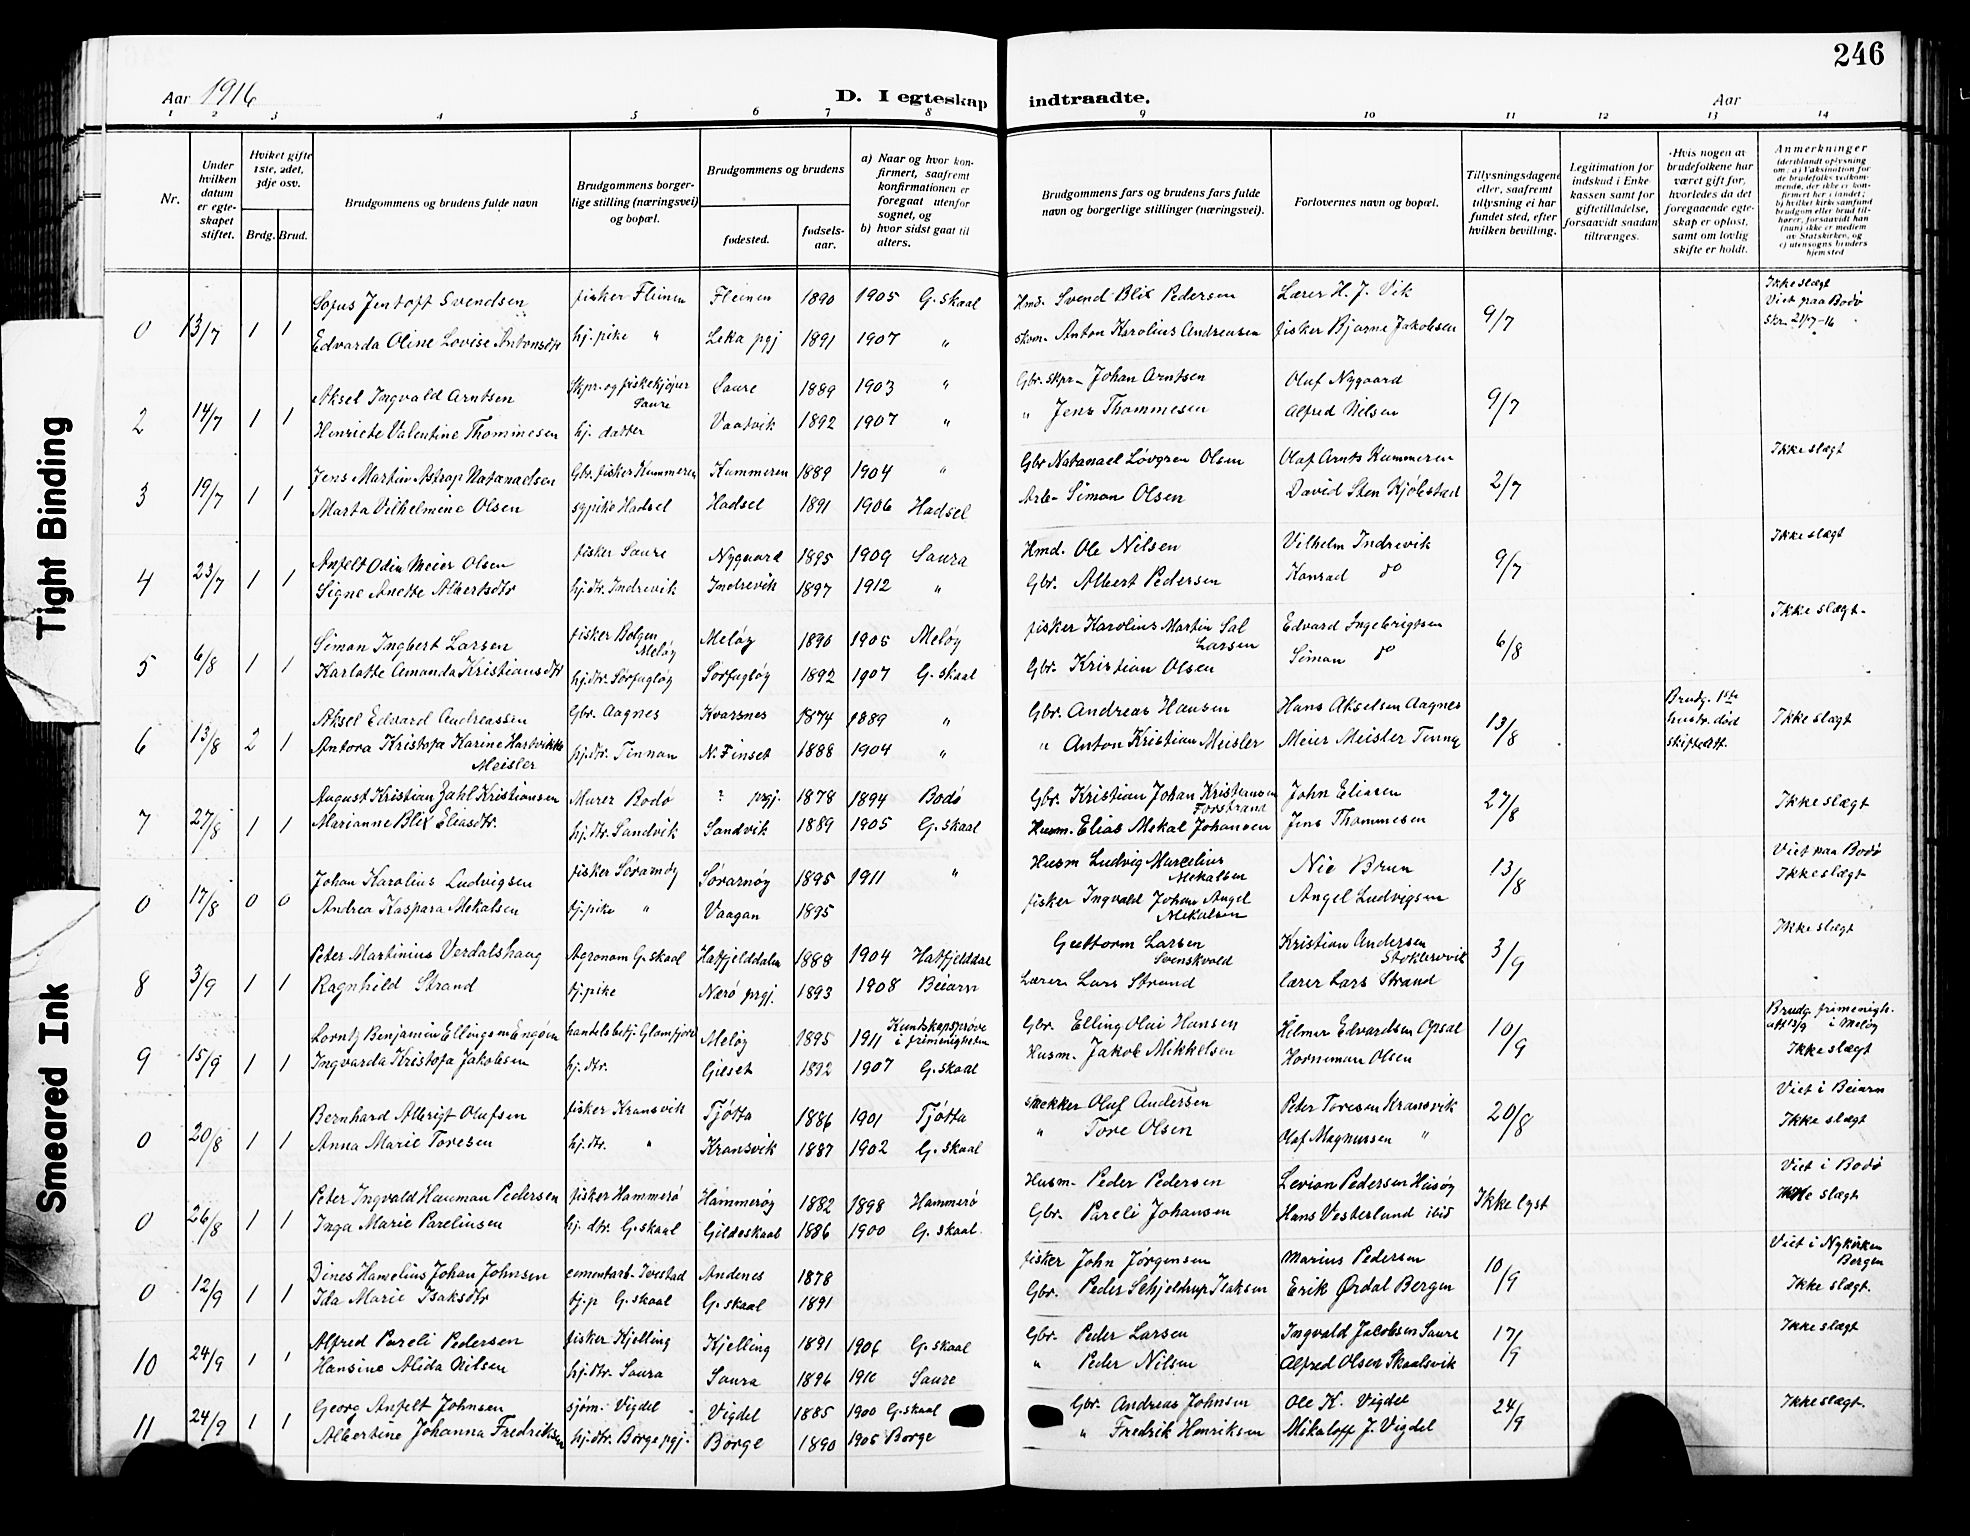 246
Aar 1916
D. I egteskap indtraadte.
Aar
1 2 3 4 5 6 7 8 9 10 11 12 13 14
Nr.
Under hvilken datum er egteskapet stiftet.
Hviket gifte 1ste, 2det, 3dje osv.
Brdg. Brud.
Brudgommens og brudens fulde navn
Brudgommens borgerlige stilling (næringsvei) og bopæl.
Brudgommens og brudens
fødested.
fødselsaar.
a) Naar og hvor konfirmert, saafremt konfirmationen er foregaat utenfor sognet, og
b) hvor sidst gaat til alters.
Brudgommens fars og brudens fars fulde navn og borgerlige stillinger (næringsvei).
Forlovernes navn og bopæl.
Tillysningsdagene eller, saafremt tillysning ei har fundet sted, efter hvilken bevilling.
Legitimation for indskud i Enkekassen samt for giftetilladelse, forsaavidt saadan tiltrænges.
Hvis nogen av brudefolkene har været gift før, hvorledes da det foregaaende egteskap er opløst, samt om lovlig skifte er holdt.
Anmerkninger (deriblandt oplysning om: a) Vaksination for de brudefolks vedkommende, der ikke er konfirmert her i landet; b) hvilket kirkesamfund brudgom eller brud tilhører, forsaavidt han (hun) ikke er medlem av Statskirken, og c) utensogns bruders hjemsted
0 13/7 1 1 Sofus Jentoft Svendsen fisker Fleinen Fleinen 1890 1905 G.skaal Hmd. Svend Blix Pedersen Lærer H. J. Vik 9/7 Ikke slægt Viet paa Bodø Skr. 21/7-16
Edvarda Oline Lovise Antonsdtr hj. pike " Leka pgj 1891 1907 " skom. Anton Karolius Andreassen fisker Bjarne Jakobsen
2 14/7 1 1 Aksel Ingvald Arntsen Skpr. og fiskekjøper Saure Saure 1889 1903 " Gbr. skpr. Johan Arntsen Oluf Nygaard 9/7
Henriete Valentine Thommesen hj. datter Vaatvik 1892 1907 " " Jens Thommesen Alfred Nilsen
3 19/7 1 1 Jens Martin Astrup Natanaelsen Gbr. fisker Kummeren Kummeren 1889 1904 " Gbr Natanael Løvgren Olsen Olaf Arnts Kummeren 2/7 Ikke slægt
Marta Vilhelmine Olsen sypike Hadsel Hadsel 1891 1906 Hadsel Arb. Simon Olsen David Sten Kjølstad
4 23/7 1 1 Anfelt Odin Meier Olsen fisker Saure Nygaard 1895 1909 Saura Hmd. Ole Nilsen Vilhelm Indrevik 9/7 Ikke slægt
Signe Anette Albertsdtr hj. dtr. Indrevik Indrevik 1897 1912 " Gbr. Albert Pedersen Konrad do
5 6/8 1 1 Simon Ingbert Larsen fisker Bolgen Meløy Meløy 1890 1905 Meløy fisker Karolius Martin Sal Larsen Edvard Ingebrigtsen 6/8 Ikke slægt.
Karlotte Amanda Kristiansdtr hj. dtr. Sørfugløy Sørfugløy 1892 1907 G.skaal Gbr. Kristian Olsen Simon do
6 13/8 2 1 Aksel Edvard Andreassen Gbr. Aagnes Kvarsnes 1874 1889 " Gbr. Andreas Hansen Hans Akselsen Aagnes 13/8 Brudg. 1ste hustr. død skifteatt. Ikke slægt
Antora Kristofa Karine Hartvikke Meisler hj. dtr. Finnan N. Finset 1888 1904 " " Anton Kristian Meisler Meier Meisler
7 27/8 1 1 August Kristian Zahl Kristiansen Murer Bodø ? prgj. 1878 1894 Bodø Gbr. Kristian Johan Kristiansen Forstrand John Eliasen 27/8 Ikke slægt
Marianne Blix Eliasdtr. hj. dtr. Sandvik Sandvik 1889 1905 G. skaal Husm. Elias Mekal Johansen Jens Thommesen
0 17/8 0 0 Johan Karolius Ludvigsen fisker Sørarnøy Sørarnøy 1895 1911 " Husm Ludvig Marcelius Mekalsen Nic Brun 13/8 Viet paa Bodø Ikke slægt
Andrea Kaspara Mekalsen tj. pike " Vaagan 1895 fisker Ingvald Johan Angel Mekalsen Angel Ludvigsen
8 3/9 1 1 Peter Martinius Verdalshaug Agronom G.skaal Hatfjelddalen 1888 1904 Hatfjelddal Guttorm Larsen Svenskvold Kristian Andersen 3/9 Ikke slægt
Ragnhild Strand tj. pike Nærø prgj. 1893 1908 Beiarn Lærer Lars Strand Lærer Lars Strand
9 15/9 1 1 Lorntz Benjamin Ellingsen Engøen handelsbetj. Glomfjord Meløy 1895 1911 Kundskapsprøve i frimenigheten Gbr. Elling Olai Hansen Hilmer Edvardsen Opsal 10/9 Brudg. frimenigh. i Meløy Ikke slægt
Ingvarda Kristofa Jakobsen hj. dtr. Gieset 1892 1907 G.skaal Husm. Jakob Mikkelsen Horneman Olsen
0 20/8 1 1 Bernhard Albrigt Olufsen fisker Kransvik Tjøtta 1886 1901 Tjøtta snekker Oluf Andersen Peter Toresen Kransvik 20/8 Viet i Beiarn Ikke slægt
Anna Marie Toresen hj. dtr. " Kransvik 1887 1902 G.skaal " Tore Olsen Olaf Magnussen "
0 26/8 1 1 Peter Ingvald Hauman Pedersen fisker Hammerø Hammerøy 1882 1898 Hammerø Husm. Peder Pedersen Levion Pedersen Husøy Ikke lyst Viet i Bodø Ikke slægt
Inga Marie Parelinsen hj. dtr. G.skaal Gildeskaal 1886 1900 G. skaal. Gbr. Pareli Johansen Hans Vesterlund ibid
0 12/9 1 1 Dines Hamelius Johan Johnsen cementarb. Ivestad Andenes 1878 fisker John Jørgensen Marius Pedersen 10/9 Viet i Nykirken Bergen Ikke slægt.
Ida Marie Isaksdtr tj. p G.skaal G.skaal 1891 Gbr. Peder Schjeldrup Isaksen Erik Ørdal Bergen
10 24/9 1 1 Alfred Pareli Pedersen fisker Kjelling Kjelling 1891 1906 G. skaal Gbr. Peder Larsen Ingvald Jacobsen Saure 17/9 Ikke slægt
Hansine Alida Nilsen hj. dtr. Saura Saura 1896 1910 Saure " Peder Nilsen Alfred Olsen Skaalsvik
11 24/9 1 1 Georg Anfelt Johnsen sjøm. Vigdel Vigdel 1885 1900 G.skaal Gbr. Andreas Johnsen Ole K. Vigdel 24/9 Ikke slægt.
Albertine Johanna Fredriksen hj. dtr. Borge pgj. Borge 1890 1905 Borge " Fredrik Henriksen Mikaloff J. Vigdel
Tight Binding
Smeared Ink